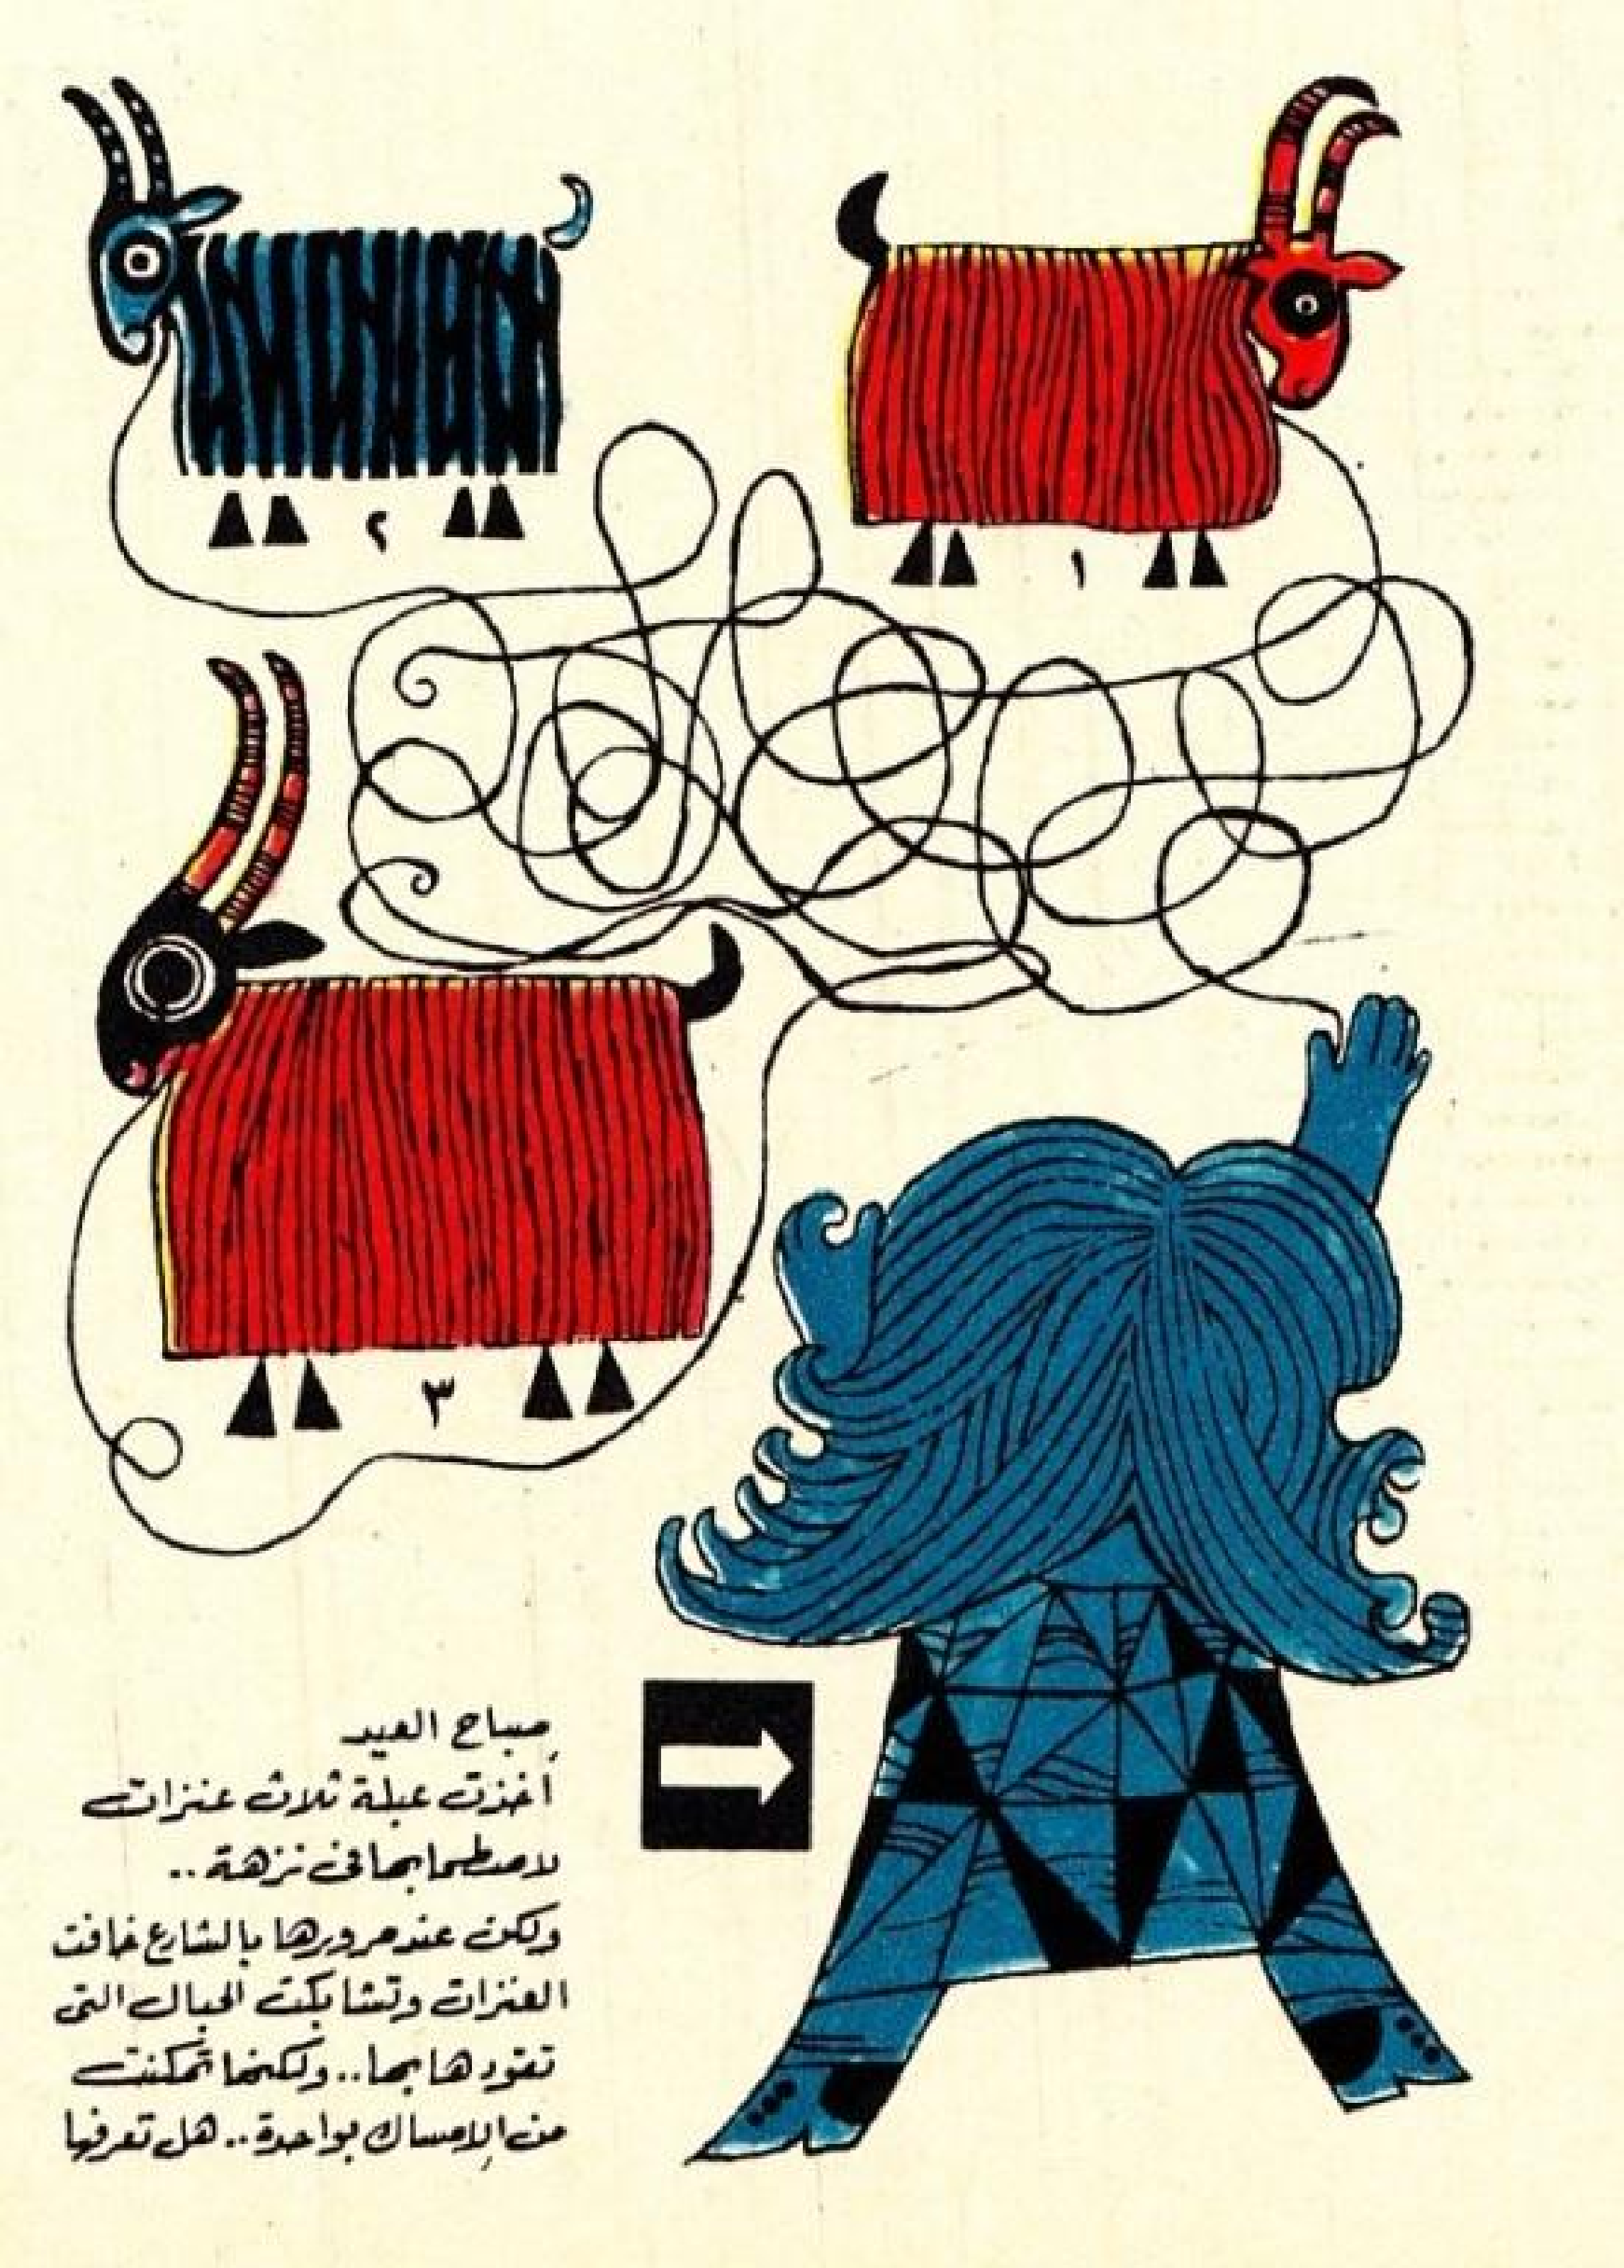 ١
٢
٣
صباح العيد
أخذت عبلة ثلاث عنزات
لاصطحابها في نزهة ..
ولكن عند مرورها بالشارع خافت
العنزات وتشابكت الحبال التى
تقودها بها .. ولكنها تمكنت
من الإمساك بواحدة .. هل تعرفها